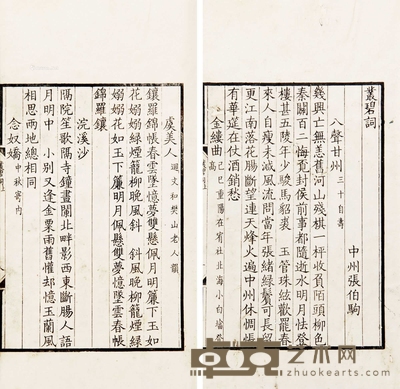 叢碧詞
中州張伯駒
八聲甘州 三十自壽
幾興亡無恙舊河山殘棋一枰收負陌頭柳色
秦關百二悔覓封侯前事都隨逝水明月怯登
樓甚五陵年少駿馬貂裘 玉管珠絃歡罷春
來人自瘦未減風流問當年張緒綠鬢可長留
更江南落花腸斷望連天烽火遍中州休惆悵
有華筵在仗酒銷愁
金縷曲 己巳重陽在宥社北海小白塔登高
虞美人 迴文和樊山老人韻
鑲羅錦帳春雲墜憶夢雙懸佩月明簾下玉如
花嫋嫋綠煙籠柳晚風斜 斜風晚柳籠煙綠
嫋嫋花如玉下簾明月佩懸雙夢憶墜雲春帳
錦羅鑲
浣溪沙
隔院笙歌隔寺鐘畫闌北畔影西東斷腸人語
月明中 小別又逢金粟雨舊懽却憶玉蘭風
相思兩地總相同
念奴嬌 中秋寄內
艺术网
zhuokearts.com